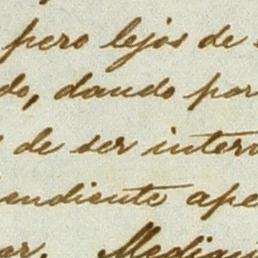 pero lejos de
do, dando por
de ser inter
endiente ape
or. Media